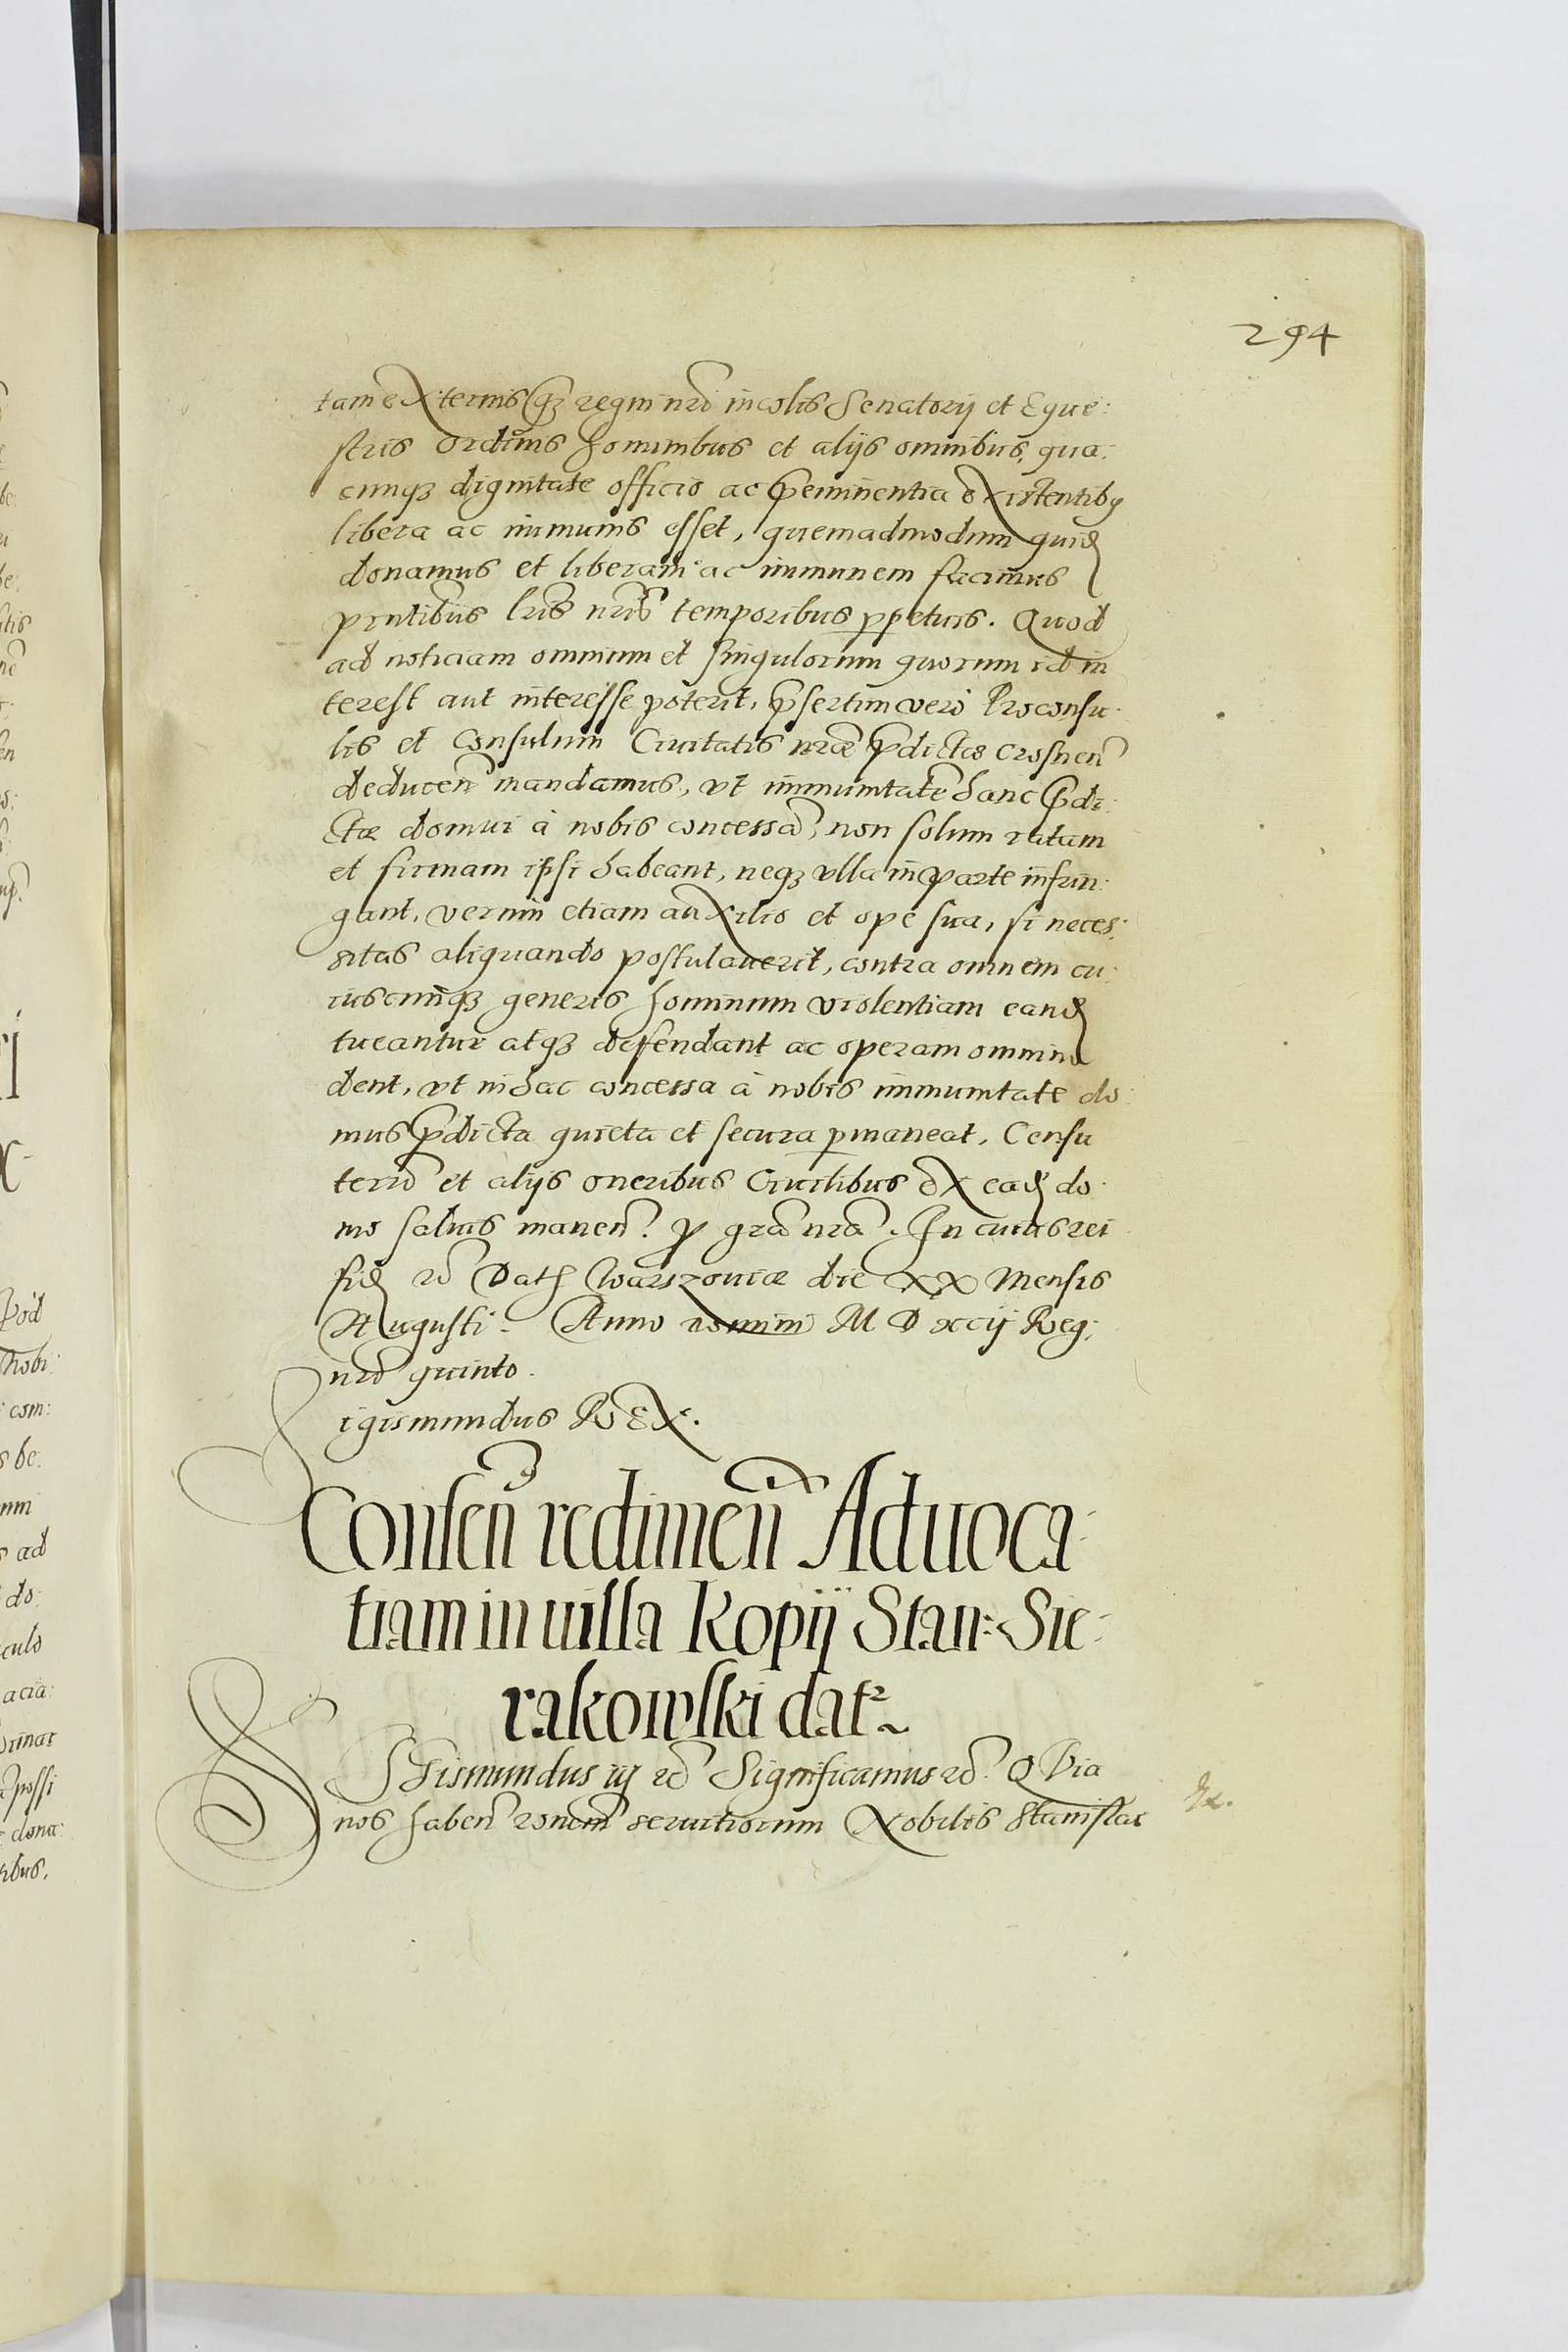 294
tam externis qz regni nrõ incolis Senatorij et Eque:
stris Ordinis hominibus et alijs omnibus, qua:
cunqz dignitate officio ac preminentia existentibq
libera ac immunis esset, quemadmodum quid
donamus et liberam ac immunem facimus
pntibus lris nris temporibus ppetuis. Quod
ad noticiam omnium et singulorum quorum id in
terest aut interesse poterit, psertim vero Proconsu:
lis et Consulum Ciuitatis nrae pdictae Crosnen
deducen mandamus, vt immunitate hanc pdi:
ctae domui à nobis concessã, non solum ratam
et firmam ipsi habeant, neqz vlla in parte infrin:
gant, verum etiam auxilio et ope sua, si neces:
sitas aliquando postulauerit, contra omnem cu:
iuscunqz generis hominum violentiam eand
tueantur atqz defendant ac operam omnino
dent, vt in hac concessa à nobis immunitate do:
mus pdicta quieta et secura pmaneat, Censu
terrõ et alijs oneribus Ciuilibus ex ead do:
mo saluis manen. p grã nrã. In cuius rei
fid rõ Dat Warszouiae die XX Mensis
Augusti. Anno domini M D xcij Reg:
nrõ quinto.
Sigismundus REX.
Consen redimen Aduoca:
tiam in uilla Kopij Stan: Sie:
rakowski dat
SIGismundus iij rõ Significamus rõ. Q Via
nos haben ronem seruitiorum Nobilis Stanislai